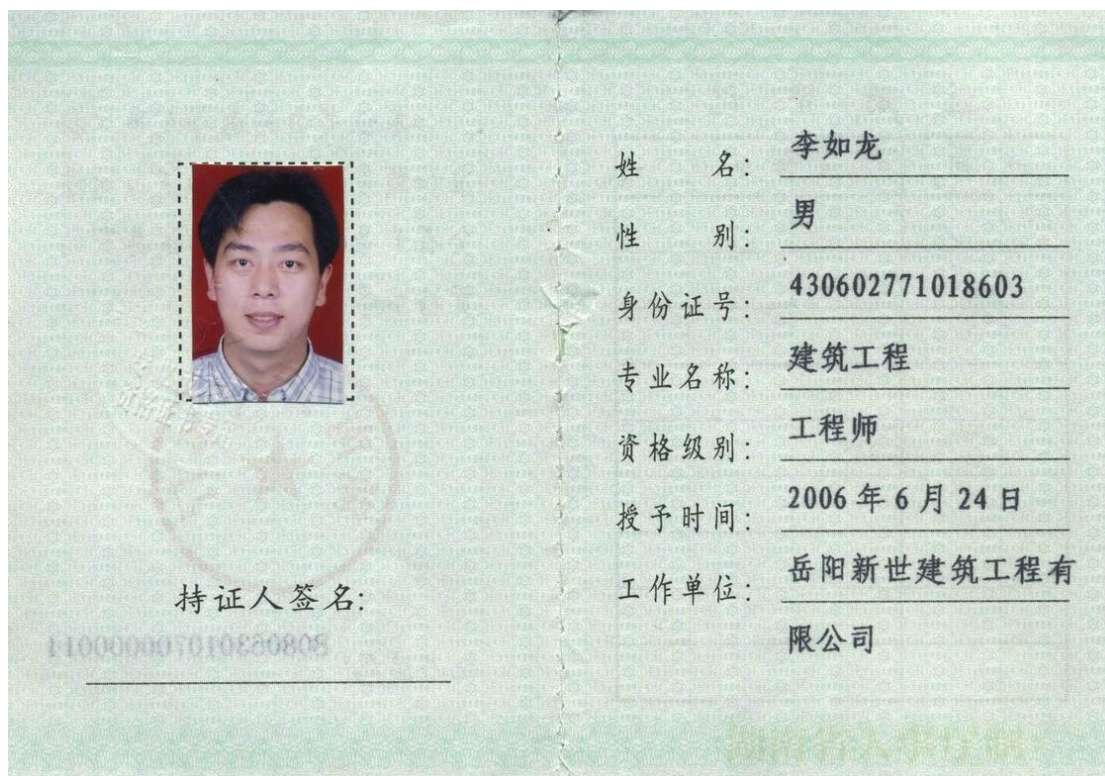 持证人签名:
B08063010700000014
姓名: 李如龙
性别: 男
身份证号: 430602771018603
专业名称: 建筑工程
资格级别: 工程师
授予时间: 2006 年 6 月 24 日
工作单位: 岳阳新世建筑工程有
限公司